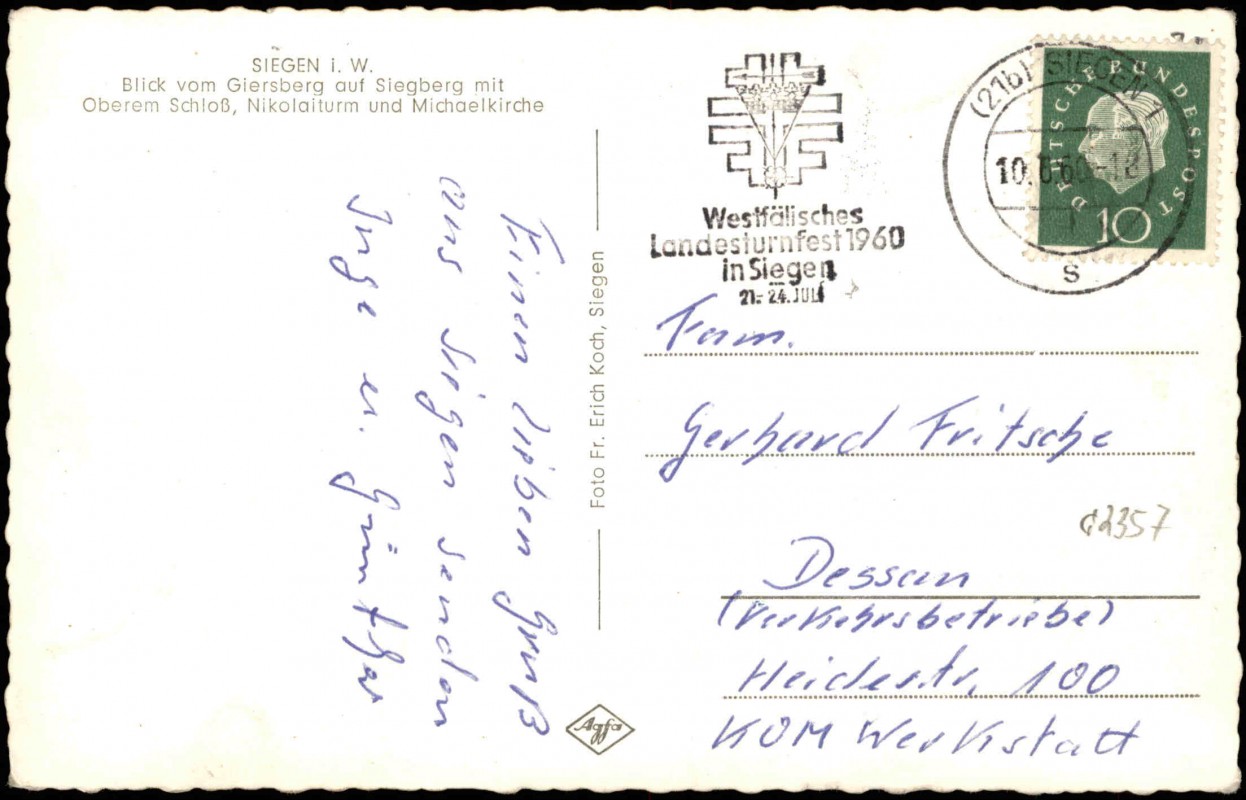 SIEGEN i. W.
Blick vom Giersberg auf Siegberg mit
Oberem Schloß, Nikolaiturm und Michaelkirche
Einen lieben Gruß
aus Siegen senden
Inge u. Günther
Foto Fr. Erich Koch, Siegen
Agfa
Westfälisches
Landesturnfest 1960
in Siegen
21.-24. JULI
(21b) SIEGEN 1
10.6.60-18
s
DEUTSCHE BUNDESPOST
10
Fam.
Gerhard Fritsche
c2357
Dessau
(Verkehrsbetriebe)
Heidestr. 100
KOM Werkstatt